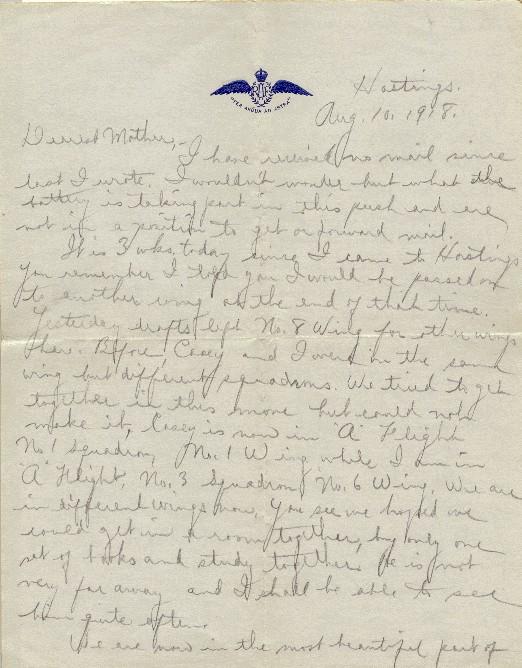 "PER ARDUA AD ASTRA"
Hastings.
Aug. 10, 1918.
Dearest Mother,-
I have received no mail since
last I wrote. I wouldn't wonder but what the
battery is taking part in this push and are
not in a position to get or forward mail.
It is 3 wks. today since I came to Hastings
You remember I told you I would be passed on
to another wing at the end of that time.
Yesterday drafts left No. 8 Wing for other wings
here. Before Casey and I were in the same
wing but different squadrons. We tried to get
together in this move but could not
make it, Casey is now in "A" Flight
No 1 Squadron, No. 1 Wing while I am in
"A" Flight, No. 3 Squadron, No. 6 Wing. We are
in different wings now. You see we hoped we
could get in a room together, buy only one
set of books and study together. He is not
very far away and I shall be able to see
him quite often.
We are now in the most beautiful part of